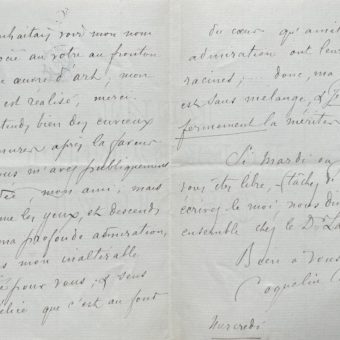 ouhaitais voir mon nom
ocié au votre au fronton
e œuvre d'art, mon
est réalisé, merci.
tends bien des envieux
mures après la faveur
ous m'avez publiquement
mon ami; mais
me les yeux, et descends
ma profonde admiration,
s mon inaltérable
é pour vous; & sens
que c'est au fond
du cœur qu'amit
admiration ont leur
racines; — donc, ma
est sans mélange, &
fermement la mériter
Si Mardi
vous êtes libre, (tâchez d
écrivez le moi nous di
ensemble chez le Dr La
Bien à vous
Coquelin
Mercredi